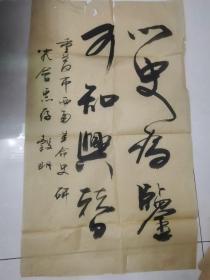 以史为鑒
可知興替
重慶市西南革命史研
究会惠存 魏明